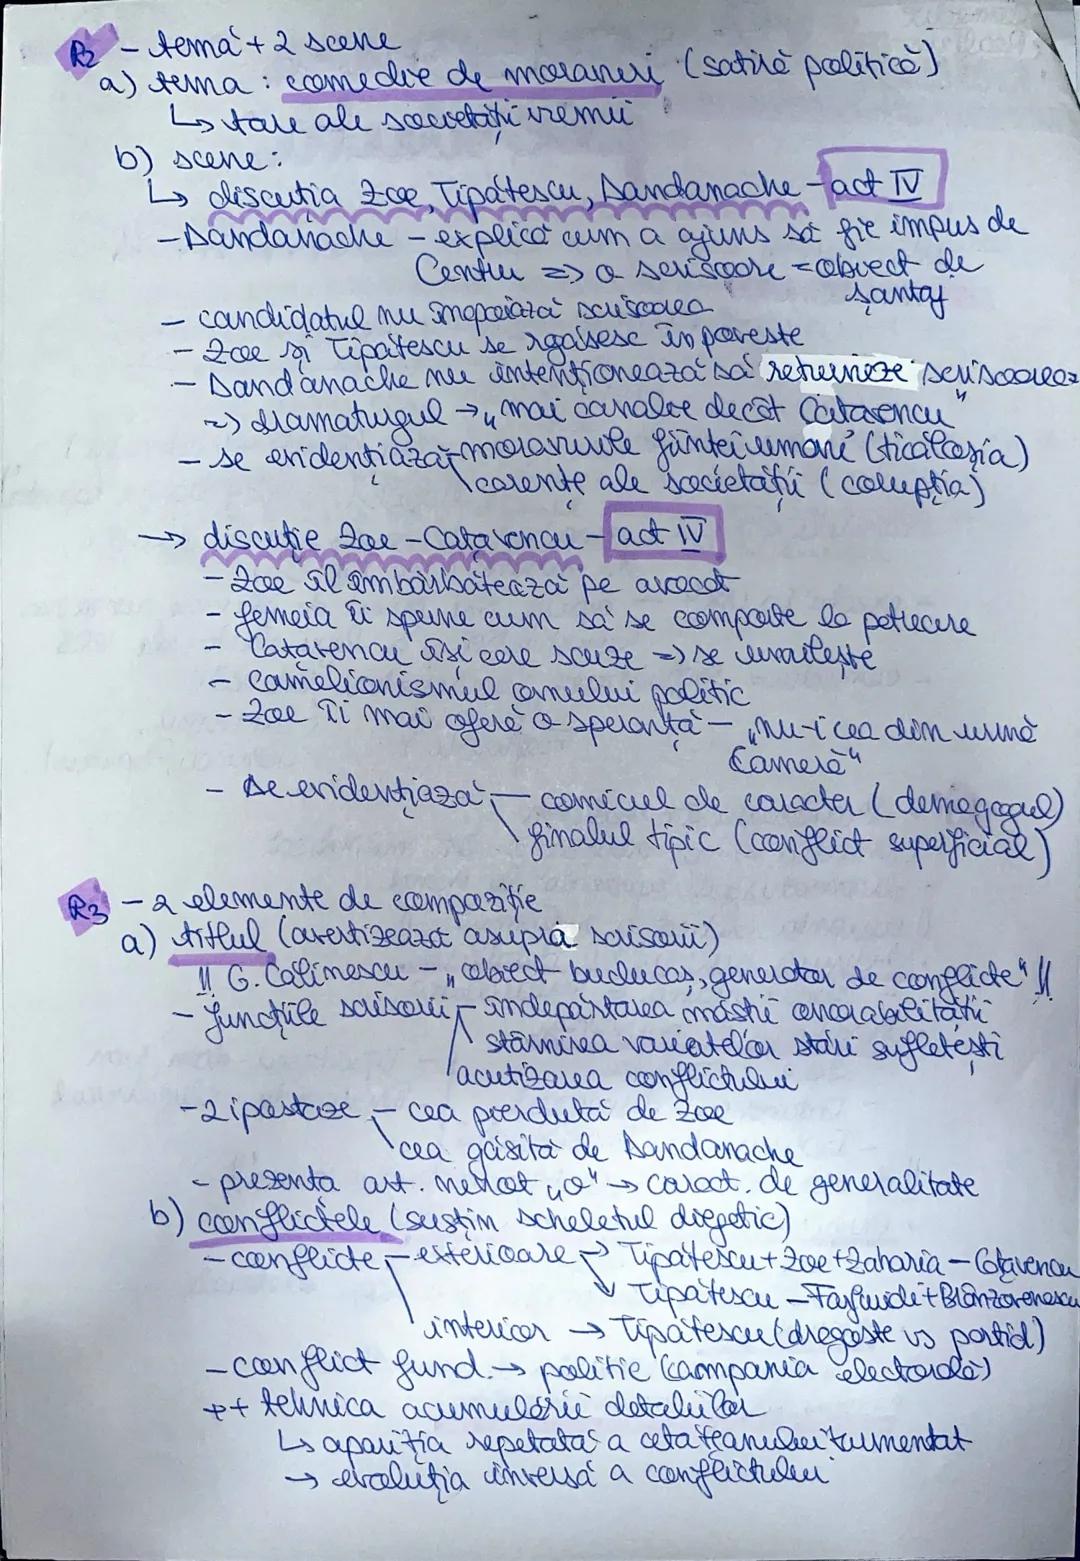 R2 - temă + 2 scene
a) tema : comedie de moravuri (satiră politică)
↳ tare ale societății vremii
b) scene:
↳ discuția Zoe, Tipătescu, Dandanache - act IV
- Dandanache - explică cum a ajuns să fie impus de
Centru => o scrisoare = obiect de
șantaj
- candidatul nu înapoiază scrisoarea
- Zoe și Tipătescu se rgăsesc în poveste
- Dandanache nu intenționează să returneze scrisoarea
=> dramaturgul → „mai canalie decât Cațavencu"
- se evidențiază - moravurile ființei umane (ticăloșia)
\ carențe ale societății (corupția)
→ discuție Zoe - Cațavencu - act IV
- Zoe îl îmbărbătează pe avocat
- femeia îi spune cum să se comporte la petrecere
- Cațavencu își cere scuze => se umilește
- camelionismul omului politic
- Zoe îi mai oferă o speranță - „nu-i cea din urmă
Cameră"
- Se evidențiază - comicul de caracter (demagogul)
\ finalul tipic (conflict superficial)
R3 - 2 elemente de compoziție
a) titlul (avertizează asupra scrisorii)
!! G. Călinescu - „obiect buclucaș, generator de conflicte" !!
- funcțiile scrisorii - îndepărtarea măștii onorabilității
stârnirea variatelor stări sufletești
acutizarea conflictului
- 2 ipostaze - cea pierdută de Zoe
\ cea găsită de Dandanache
- prezența art. nehot „o" → caract. de generalitate
b) conflictele (susțin scheletul diegetic)
- conflicte - exterioare → Tipătescu + Zoe + Zaharia - Cațavencu
↘ Tipătescu - Farfuridi + Brânzovenescu
interior → Tipătescu (dragoste vs partid)
- conflict fund. → politic (campania electorală)
++ tehnica acumulării detaliilor
↳ apariția repetată a cetățeanului turmentat
→ evoluția inversă a conflictului